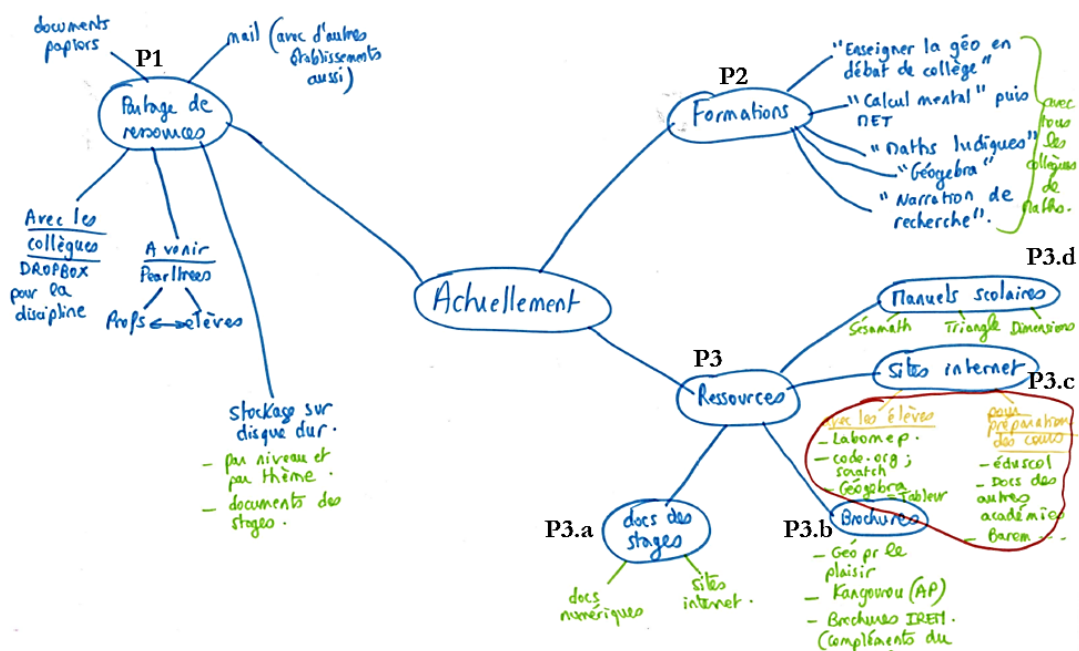 documents
papiers
mail (avec d'autres
établissements
aussi)
P1
Partage de
ressources
Avec les
collègues
DROPBOX
pour la
discipline
A venir
Pearltrees
Profs ↔ élèves
Stockage sur
disque dur.
- par niveau et
par thème.
- documents des
stages.
Actuellement
P2
Formations
"Enseigner la géo en
débat de collège"
"Calcul mental" puis
NET
"Maths ludiques"
"Géogebra"
"Narration de
recherche".
avec
tous
les
collègues
de
maths.
P3
Ressources
P3.d
Manuels scolaires
Sésamath
Triangle
Dimensions
Sites internet
P3.c
Avec les élèves
- Labomep.
- code.org ;
scratch
- Géogebra
- Tableur
pour
préparation
des cours
- éduscol
- Docs des
autres
académies
- Barem...
P3.a
docs des
stages
docs
numériques
sites
internet.
P3.b
Brochures
- Géo pr le
plaisir
- Kangourou (AP)
- Brochures IREM.
(compléments du